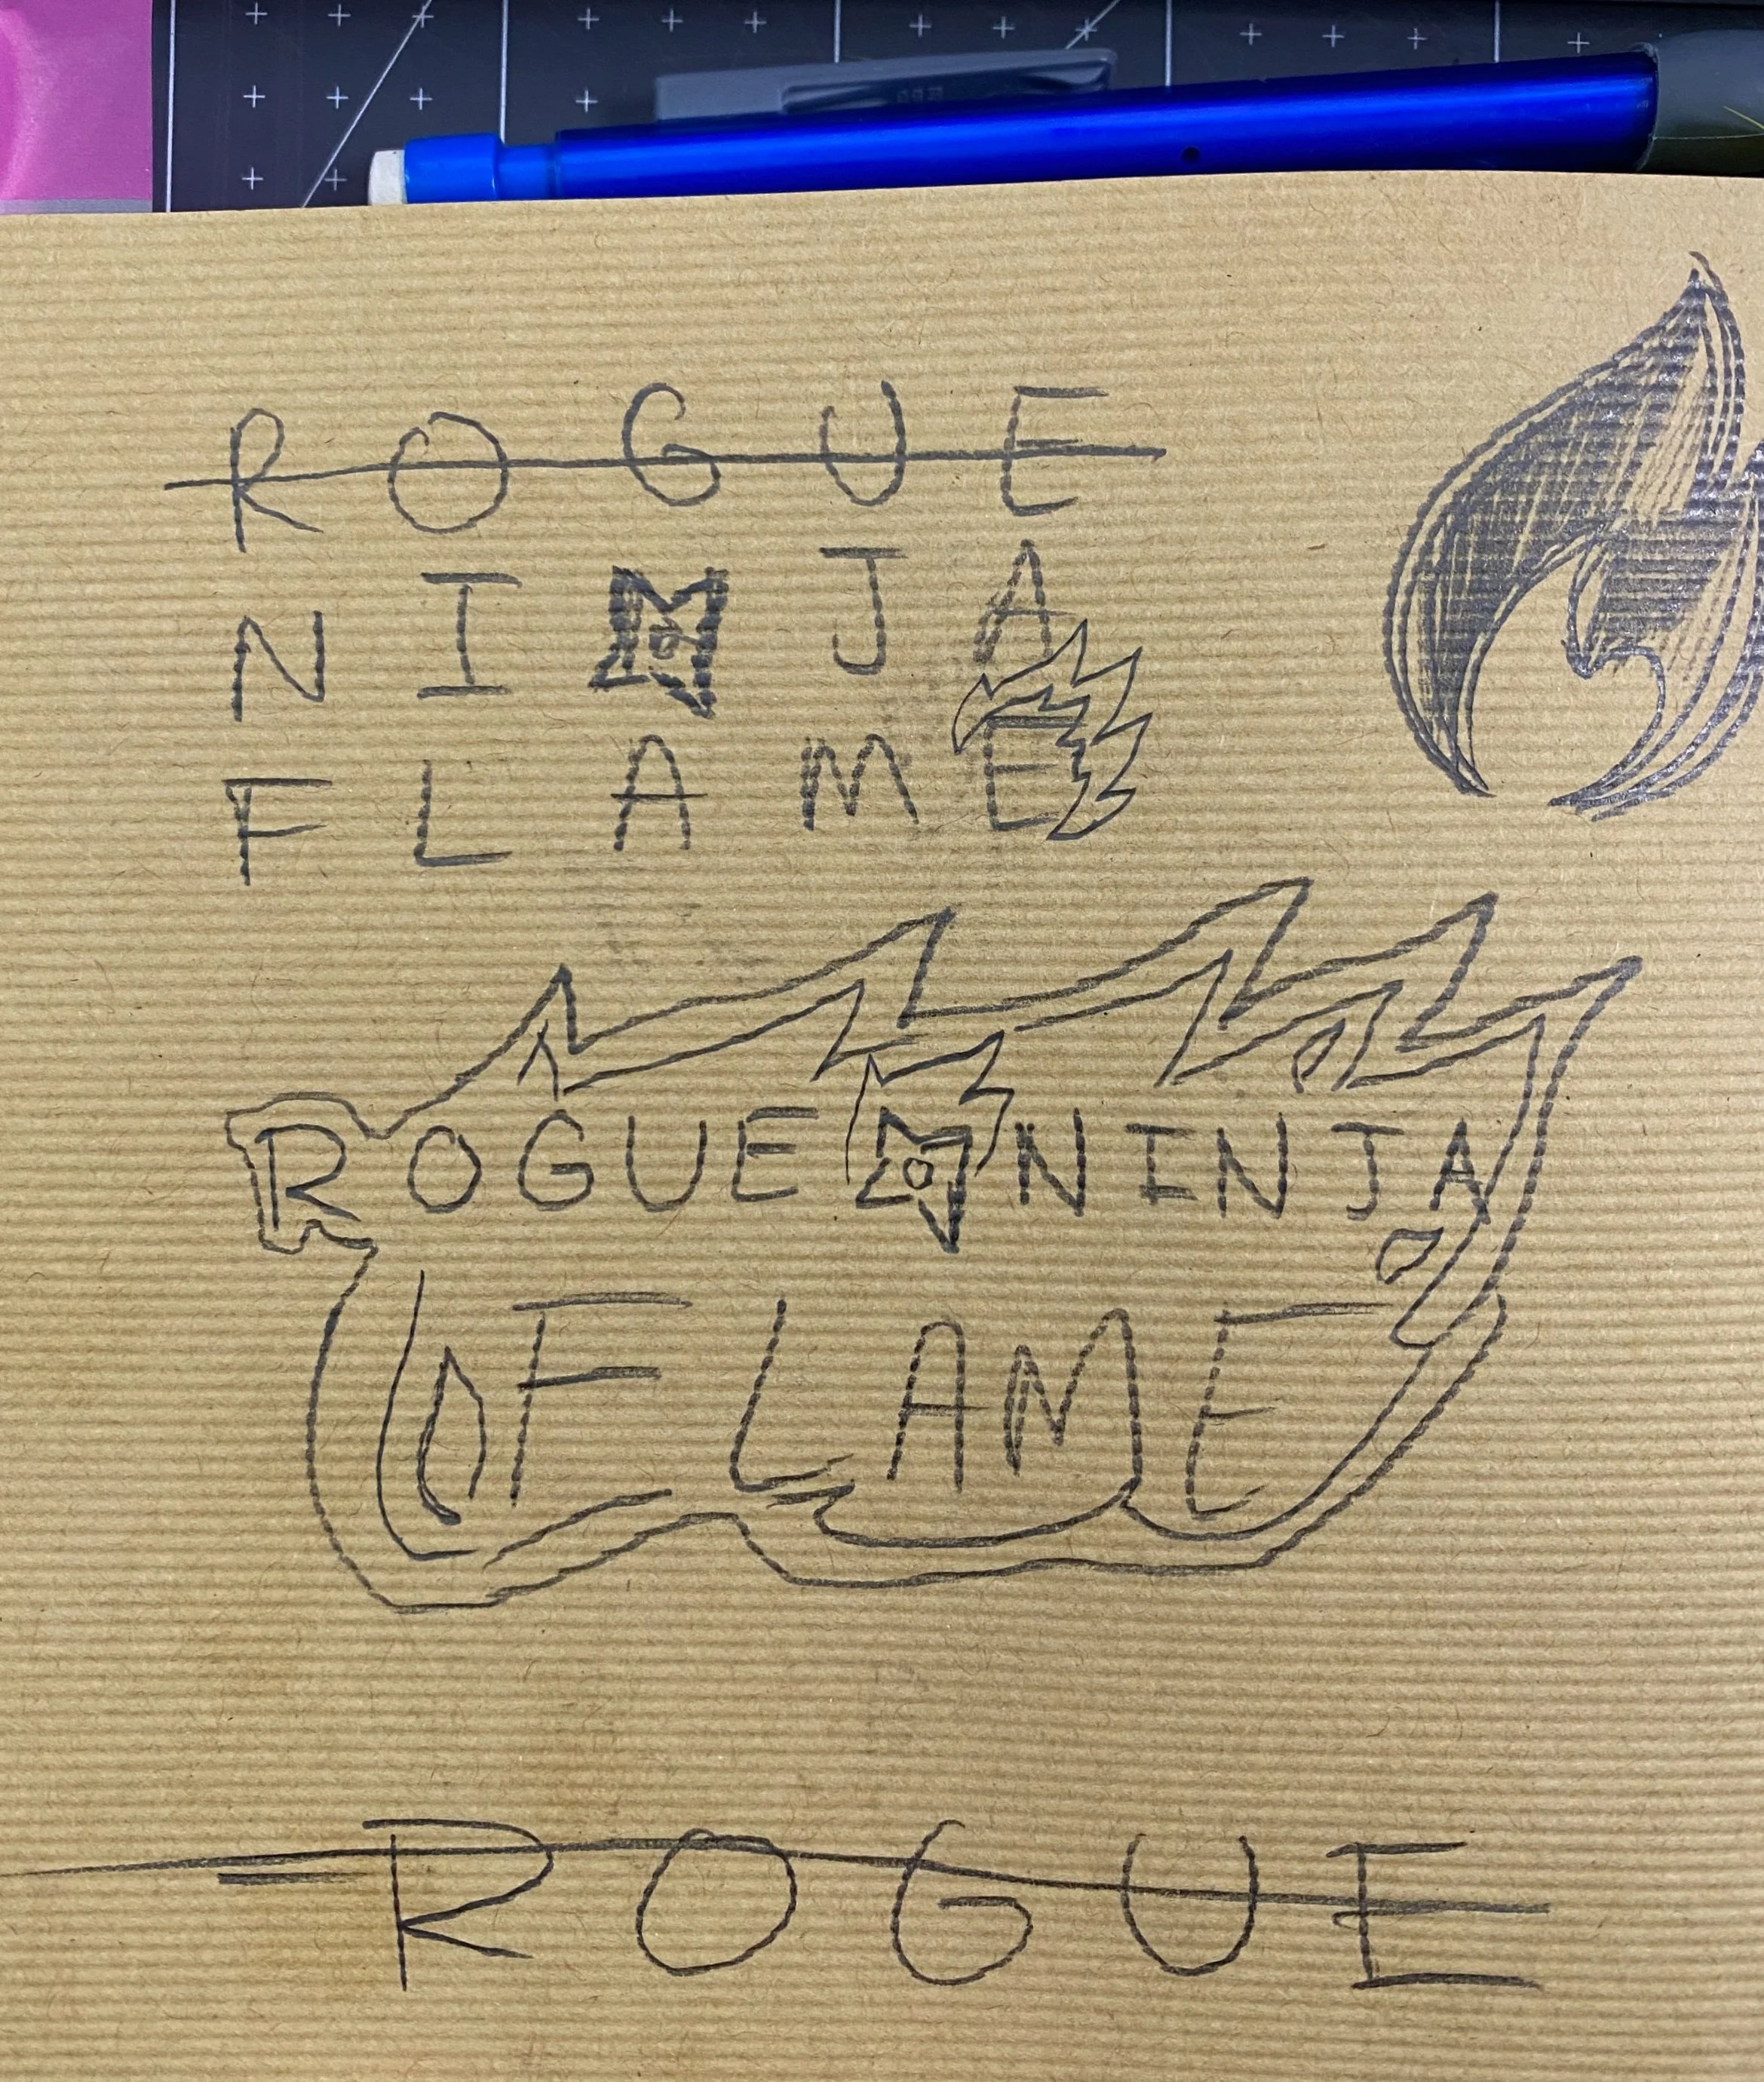 ROGUE
NINJA
FLAME
ROGUE NINJA
FLAME
ROGUE